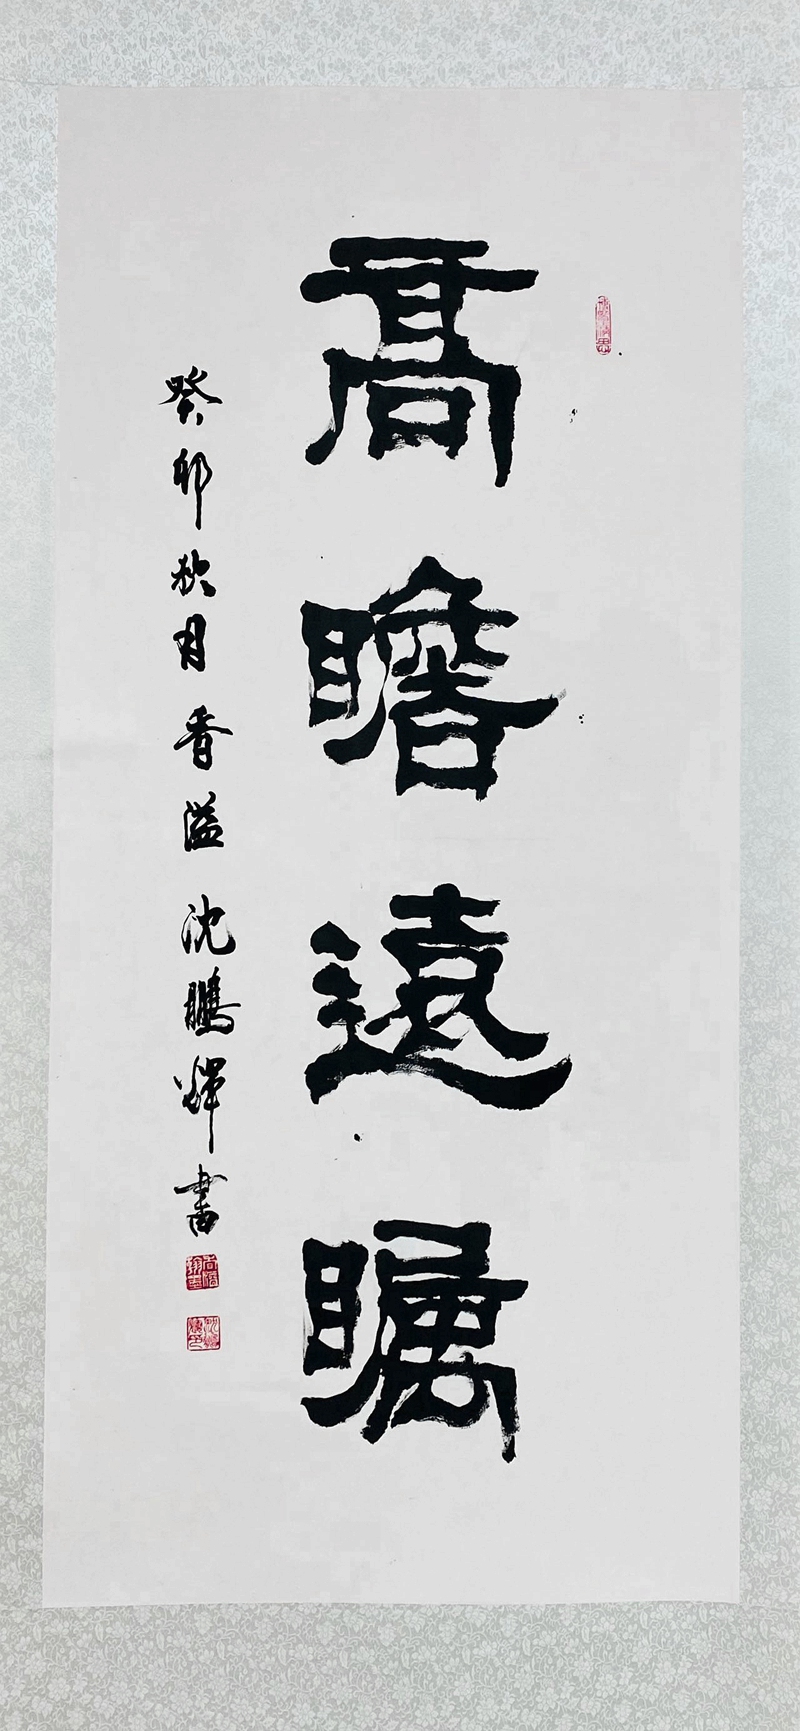 高瞻遠矚
癸卯秋月香溢沈鵬輝書